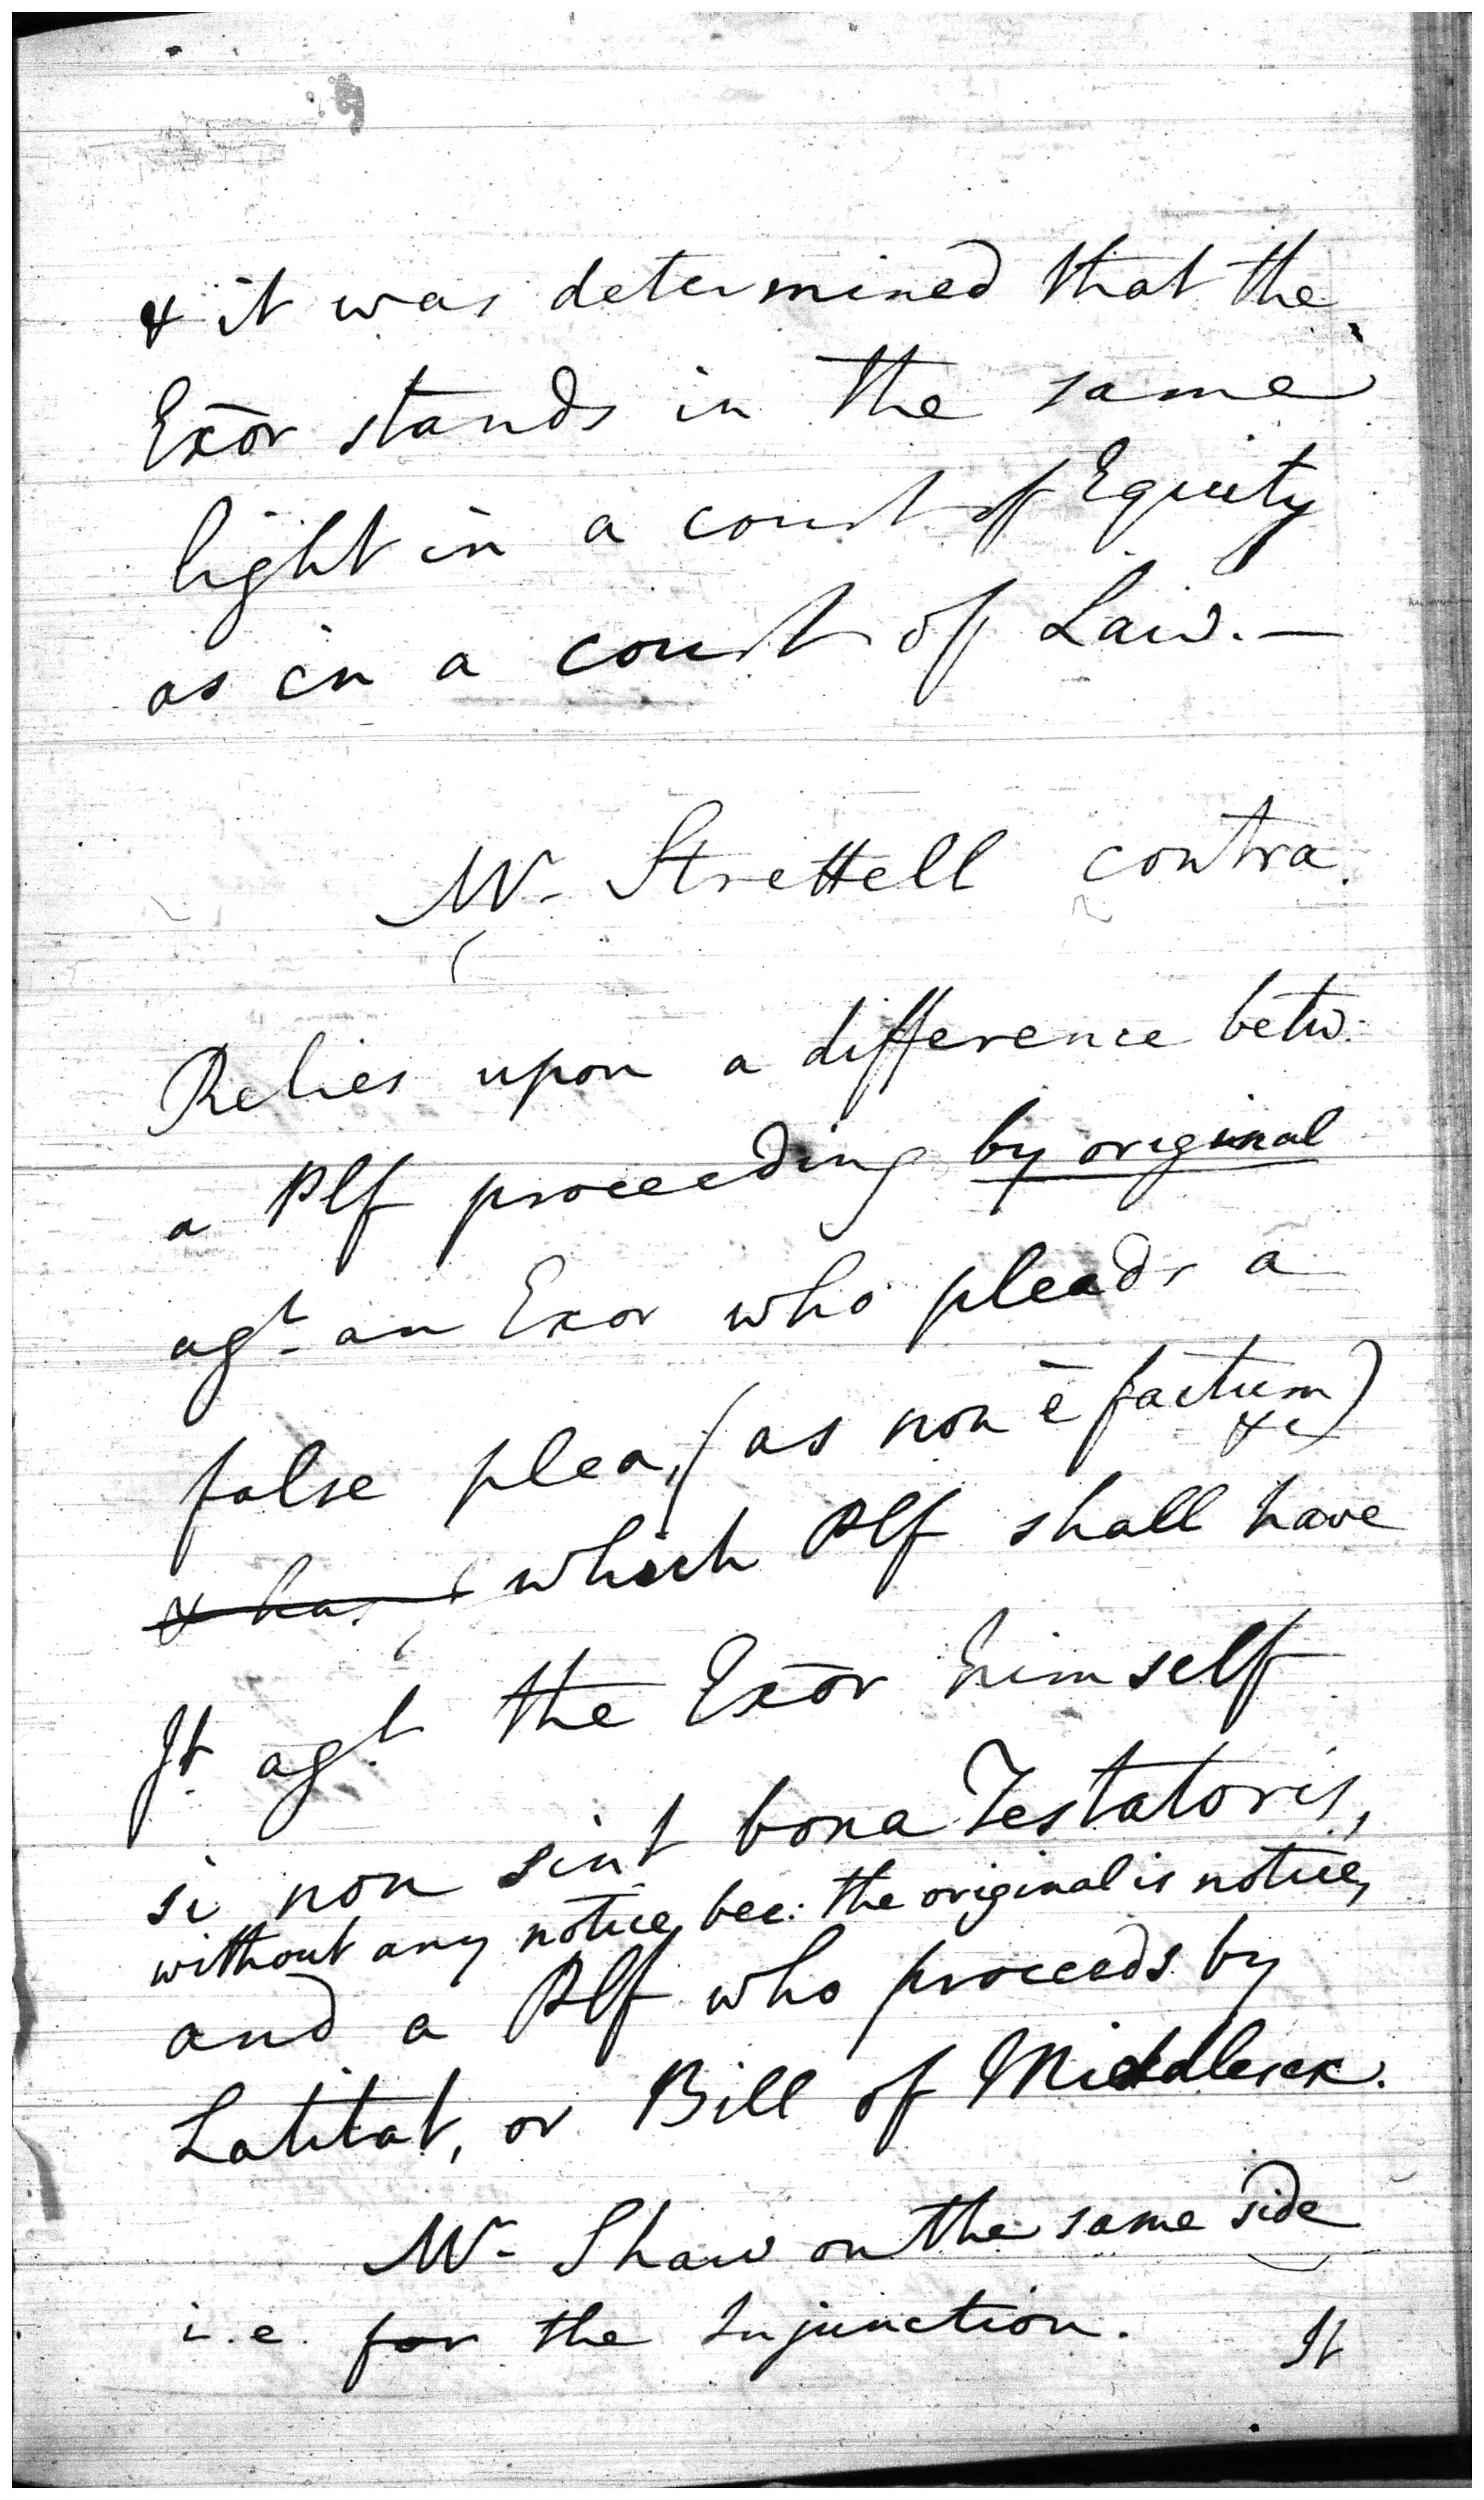 & it was determined that the
Exōr stands in the same
light in a court of Equity
as in a court of Law. —
Mr. Strettell contra.
Relies upon a difference betw:
a Plf proceeding by original
agt. an Exor who pleads a
false plea, (as non ē factum &c)
& has which Plf shall have
Jt. agt. the Exōr himself
si non sint bona Testatoris,
without any notice, bec: the original is notice,
and a Plf who proceeds by
Latitat, or Bill of Middlesex.
Mr. Shaw on the same side
i.e. for the Injunction.
It